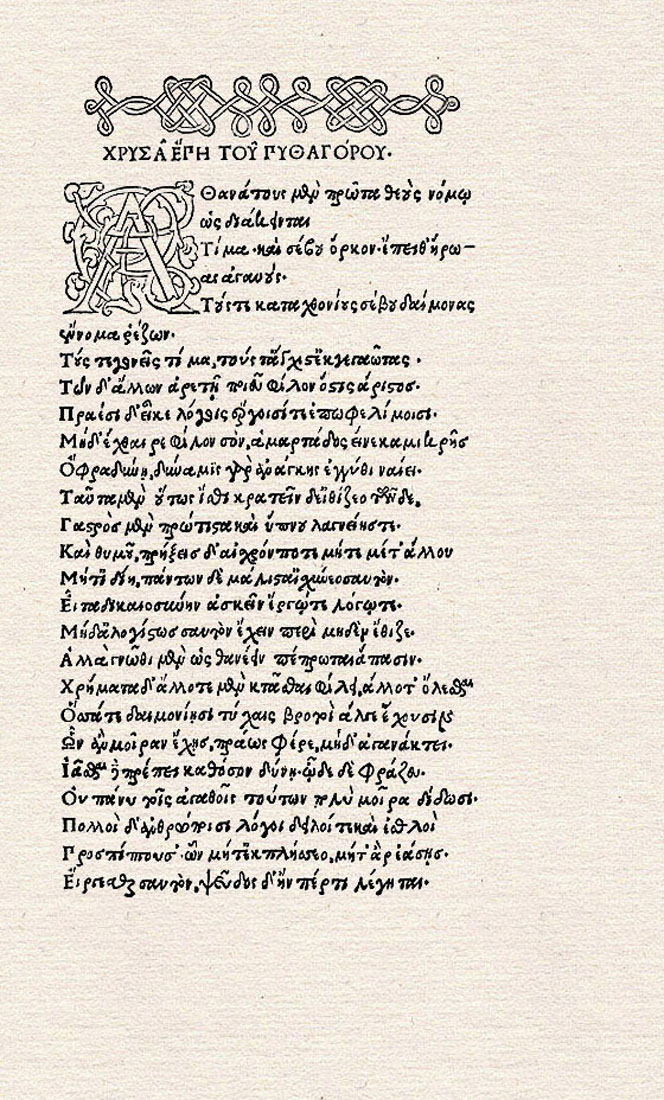 ΧΡΥΣΑ͂ ἜΠΗ ΤΟΥ͂ ΠΥΘΑΓΌΡΟΥ.
Αθανάτους μὲν πρῶτα θεοὺς νόμῳ
ὡς διάκεινται
Τίμα· καὶ σέβου ὅρκον· ἔπειθ' ἥρω-
ας ἀγαυούς·
Τούς τε καταχθονίους σέβου δαίμονας
ἔννομα ῥέζων·
Τούς τε γονεῖς τίμα, τούς τ' ἄγχιστ' ἐκγεγαῶτας.
Τῶν δ' ἄλλων ἀρετῇ ποιοῦ φίλον ὅστις ἄριστος·
Πραέσι δ' εἶκε λόγοις ἔργοισί τ' ἐπωφελίμοισι·
Μηδ' ἔχθαιρε φίλον σὸν, ἁμαρτάδος εἵνεκα μικρῆς
Ὄφρα δύνῃ, δύναμις γὰρ ἀνάγκης ἐγγύθι ναίει·
Ταῦτα μὲν οὕτως ἴσθι κρατεῖν δ' εἰθίζεο τῶνδε,
Γαστρὸς μὲν πρώτιστα καὶ ὕπνου λαγνείης τε·
Καὶ θυμοῦ, πρήξεις δ' αἰσχρόν ποτε μήτε μέτ' ἄλλου
Μήτ' ἰδίῃ, πάντων δὲ μάλιστ' αἰσχύνεο σαυτόν·
Εἶτα δικαιοσύνην ἀσκεῖν ἔργῳ τε λόγῳ τε·
Μηδ' ἀλογίστως σαυτὸν ἔχειν περὶ μηδὲν ἔθιζε·
Ἀλλὰ γνῶθι μὲν ὡς θανέειν πέπρωται ἅπασιν·
Χρήματα δ' ἄλλοτε μὲν κτᾶσθαι φίλει, ἄλλοτ' ὀλέσθαι
Ὅσσα τε δαιμονίῃσι τύχαις βροτοὶ ἄλγε' ἔχουσιν
Ὧν ἂν μοῖραν ἔχῃς, πράως φέρε, μηδ' ἀγανάκτει·
Ἰᾶσθαι δὲ πρέπει καθόσον δύνῃ· ὧδε δὲ φράζευ·
Οὐ πάνυ τοῖς ἀγαθοῖς τούτων πολὺ μοῖρα δίδωσι·
Πολλοὶ δ' ἀνθρώποισι λόγοι δειλοί τε καὶ ἐσθλοὶ
Προσπίπτουσ' ὧν μήτ' ἐκπλήσσεο, μήτ' ἂρ' ἐάσῃς·
Εἴργεσθαι σαυτὸν, ψεῦδος δ' ἤν πέρ τι λέγηται·